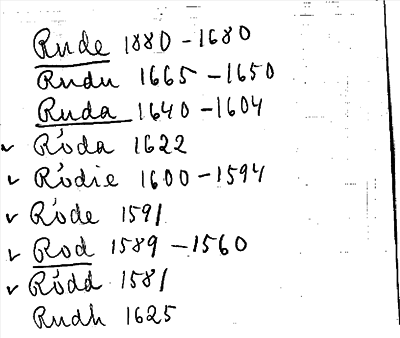 Rude 1880-1680
Rudu 1665-1650
Ruda 1640-1604
✓ Róda 1622
✓ Ródie 1600-1594
✓ Róde 1591
✓ Rod 1589-1560
✓ Ródd 1581
Rudh 1625